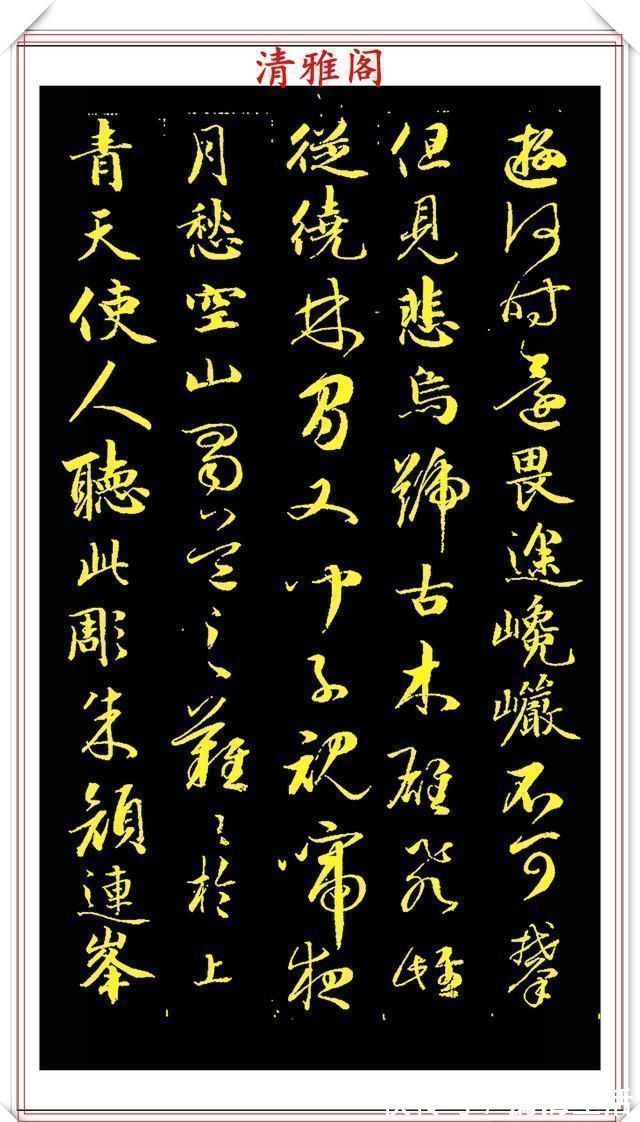 清雅阁
遊何時還畏途巉巖不可攀
但見悲鳥號古木雄飛雌
從繞林間又聞子規啼夜
月愁空山蜀道之難〻於上
青天使人聽此彫朱顏連峯